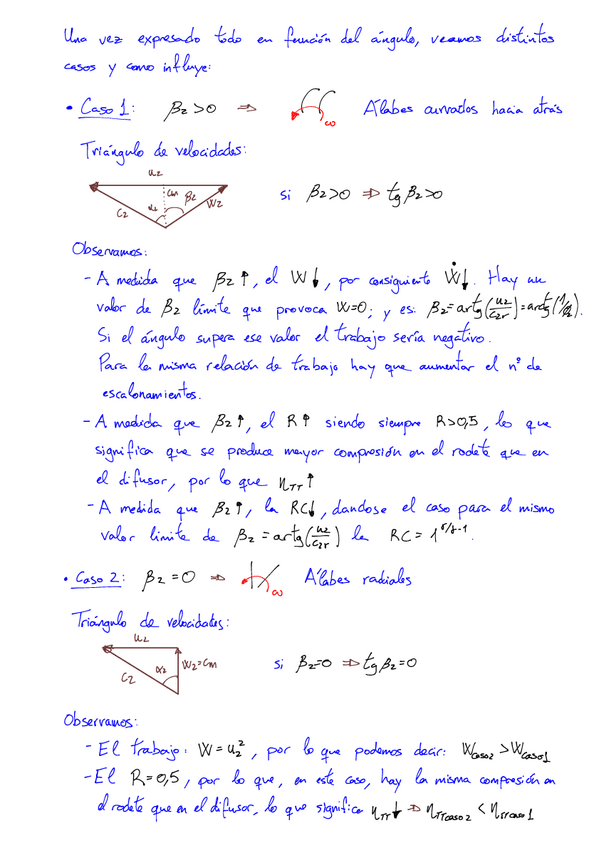 Una vez expresado todo en función del ángulo, veamos distintos
casos y como influye:
• Caso 1: β2>0 ⇒ ω Álabes curvados hacia atrás
Triángulo de velocidades:
u2
cm β2
α2
c2 w2
si β2>0 ⇒ tg β2>0
Observamos:
- A medida que β2↑, el W↓, por consiguiente Ẇ↓. Hay un
valor de β2 límite que provoca W=0, y es: β2=artg(u2/c2r)=artg(1/φ2).
Si el ángulo supera ese valor el trabajo sería negativo.
Para la misma relación de trabajo hay que aumentar el nº de
escalonamientos.
- A medida que β2↑, el R↑ siendo siempre R>0,5, lo que
significa que se produce mayor compresión en el rodete que en
el difusor, por lo que ηTT↑
- A medida que β2↑, la RC↓, dandose el caso para el mismo
valor limite de β2 = artg(u2/c2r) la RC = 1^γ/γ-1.
• Caso 2: β2=0 ⇒ ω Álabes radiales
Triángulo de velocidades:
u2
α2 W2=Cm
c2
si β2=0 ⇒ tg β2=0
Observamos:
- El trabajo: W=u2², por lo que podemos decir: Wcaso2 > Wcaso1
- El R=0,5, por lo que, en este caso, hay la misma compresión en
el rodete que en el difusor, lo que significa ηTT↓ ⇒ ηTTcaso2 < ηTTcaso1